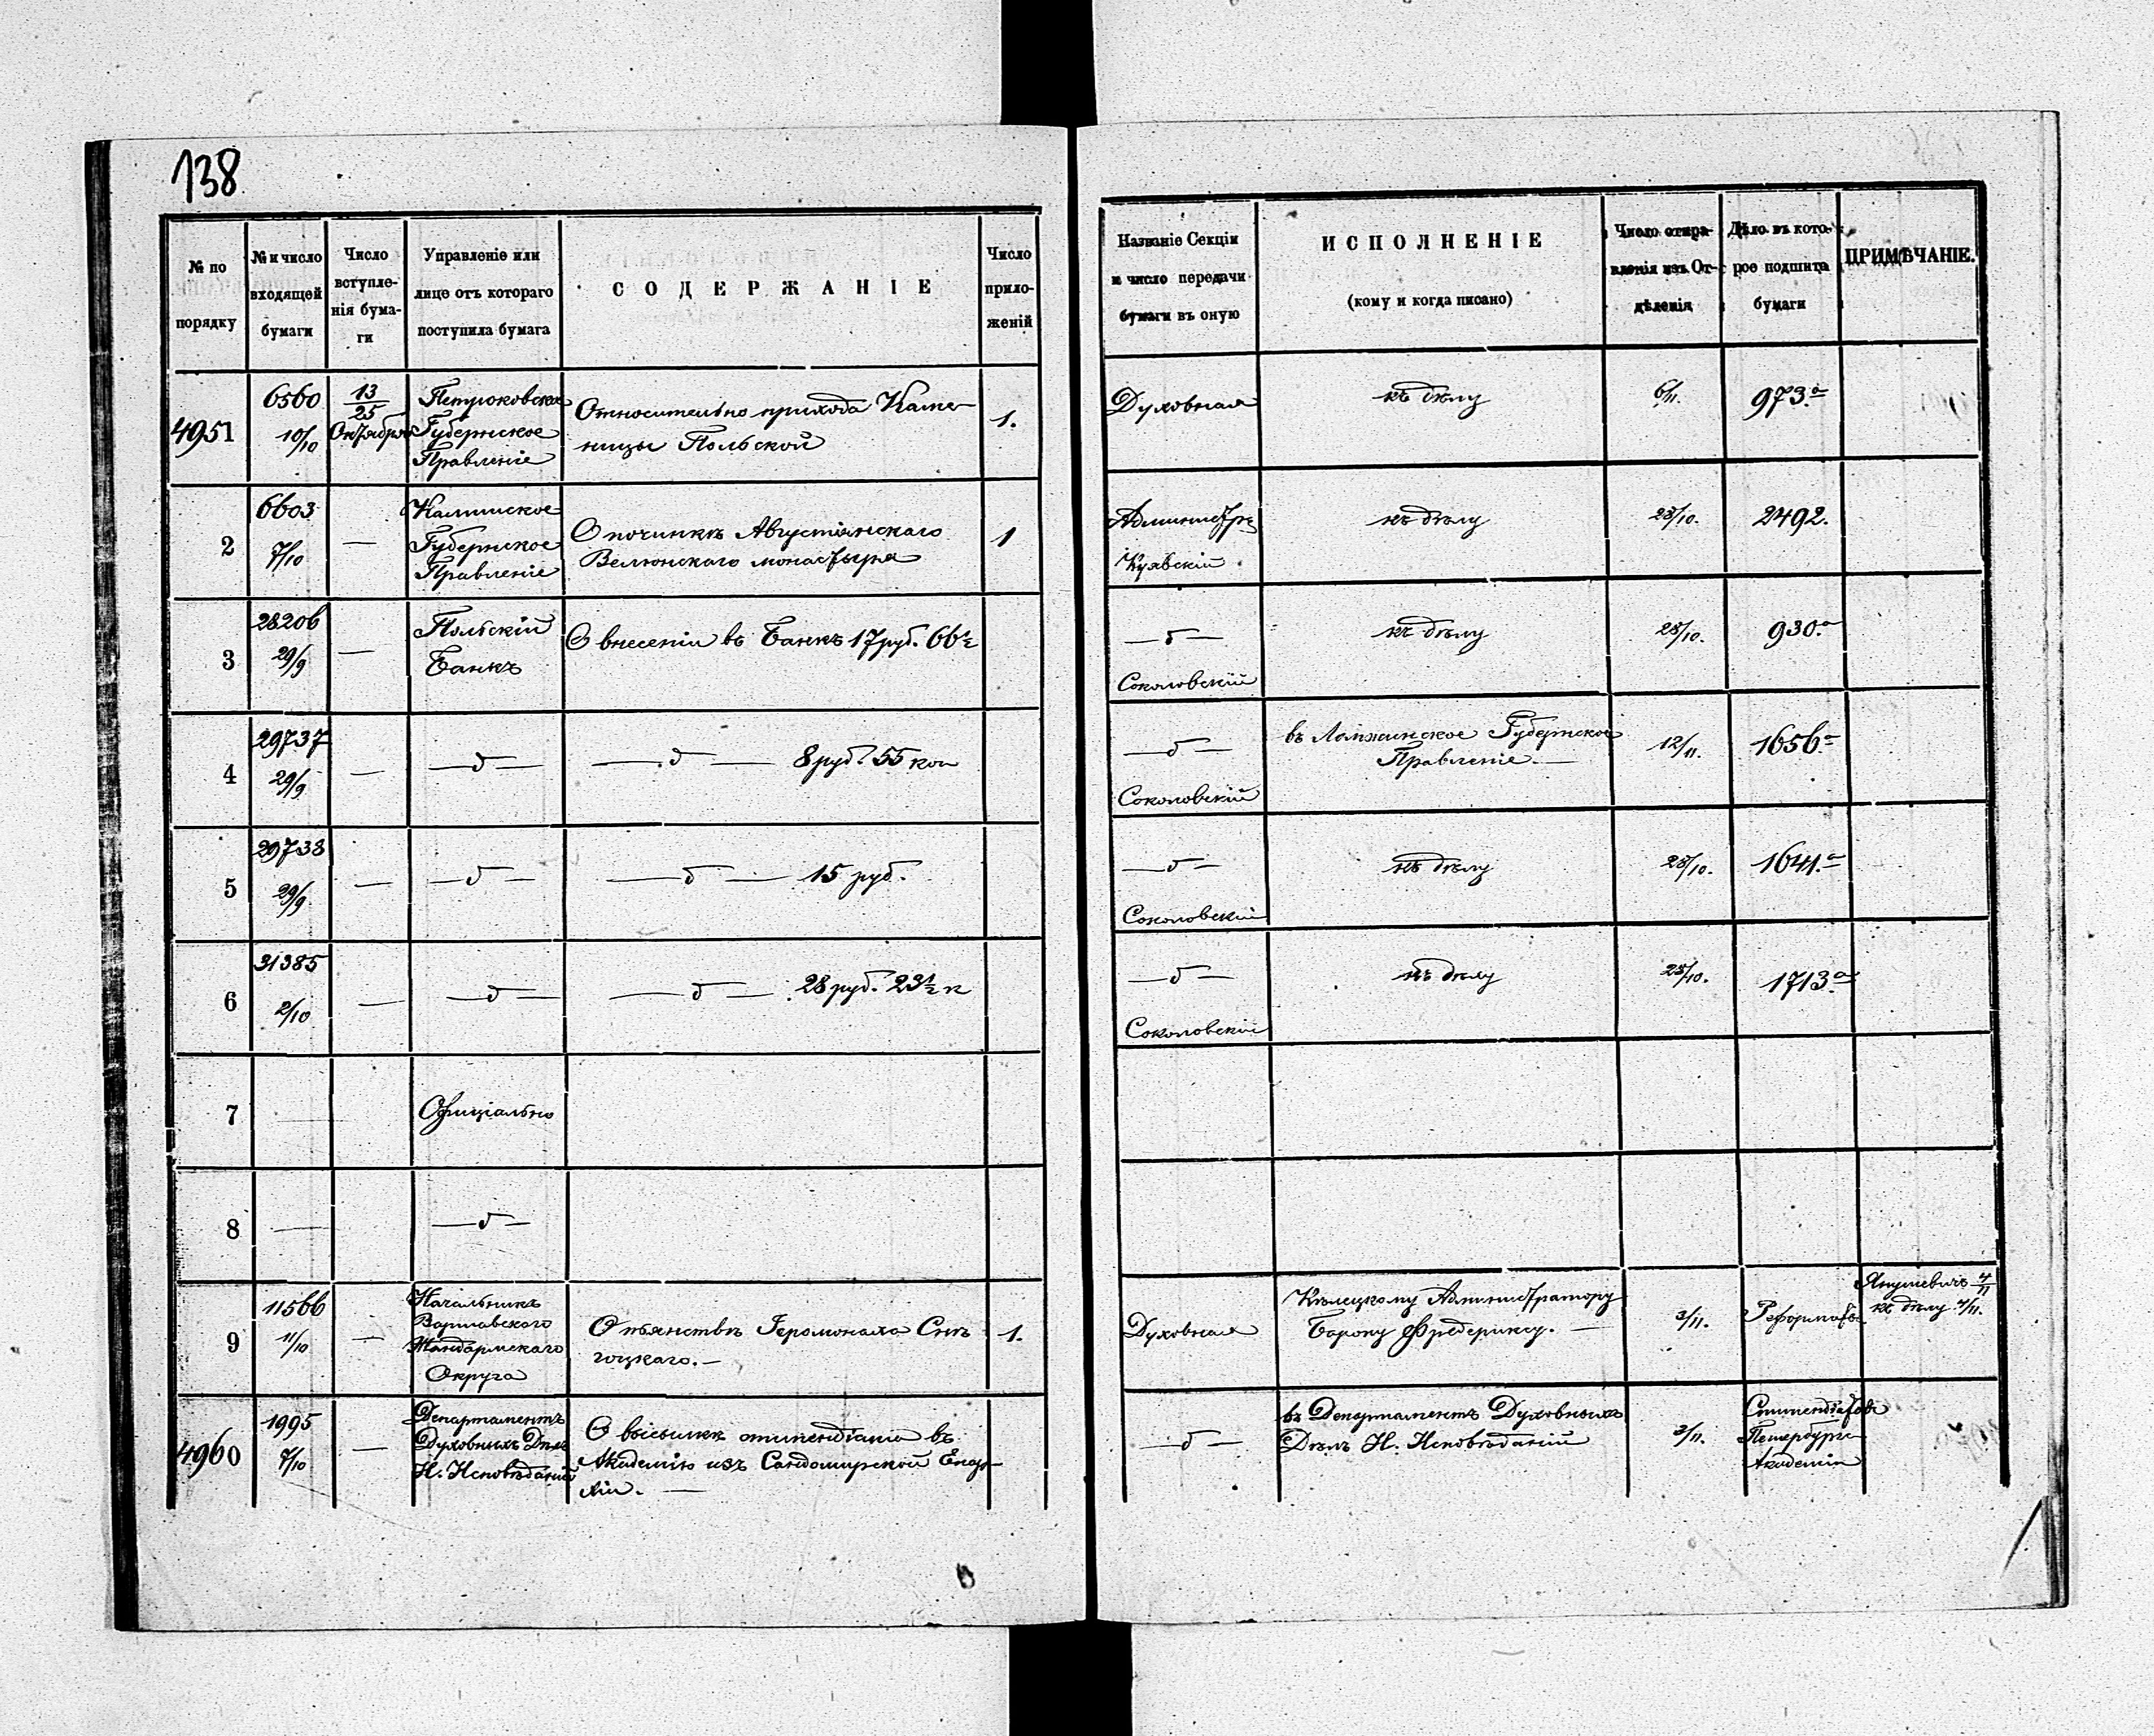 138
№ по порядку
№ и число входящей бумаги
Число вступле-нія бума-ги
Управленіе или лице отъ котораго поступила бумага
СОДЕРЖАНІЕ
Число прило-женій
Названіе Секціи и число передачи бумаги въ оную
ИСПОЛНЕНІЕ
(кому и когда писано)
Число отпра-вленія изъ От-дѣленія
Дѣло въ кото-рое подшита бумаги
ПРИМѢЧАНІЕ.
4951
6560
10/10
13/25
Октября
Петроковское
Губернское
Правленіе
Относительно прихода Каме-
ницы Польской
1.
Духовная
къ дѣлу
6/11.
973.а
2
6603
7/10
—
Калишское
Губернское
Правленіе
О починкѣ Августіянскаго
Велюнскаго монастыря
1
Администр.
Куявскій
къ дѣлу
28/10.
2492.
3
28206
29/9
—
Польскій
Банкъ
О внесеніи въ Банкъ 17 руб. 66½
—д—
Соколовскій
къ дѣлу
28/10.
930.а
4
29737
29/9
—
—д—
—д— 8 руб. 55 коп
—д—
Соколовскій
въ Ломжинское Губернское
Правленіе.—
12/11.
1656.а
5
29738
29/9
—
—д—
—д— 15 руб.
—д—
Соколовскій
къ дѣлу
28/10.
1641.а
6
31385
2/10
—
—д—
—д— 28 руб. 23½ к
—д—
Соколовскій
къ дѣлу
28/10.
1713.а
7
—
Офиціально
8
—
—д—
9
11566
11/10
—
Начальникъ
Варшавскаго
Жандармскаго
Округа
О пьянствѣ Іеромонаха Снѣ-
гоцкаго.—
1.
Духовная
Кѣлецкому Администратору
Барону Фредериксу.—
3/11.
Реформаты
Янушевичъ 4/11
къ дѣлу 4/11.
4960
1995
7/10
—
Департаментъ
Духовныхъ Дѣлъ
И. Исповѣданій
О высылкѣ стипендіата въ
Академію изъ Сандомирской Епар-
хіи.—
—д—
въ Департаментъ Духовныхъ
Дѣлъ И. Исповѣданій
3/11.
Стипендіатовъ
Петербург.
Академіи